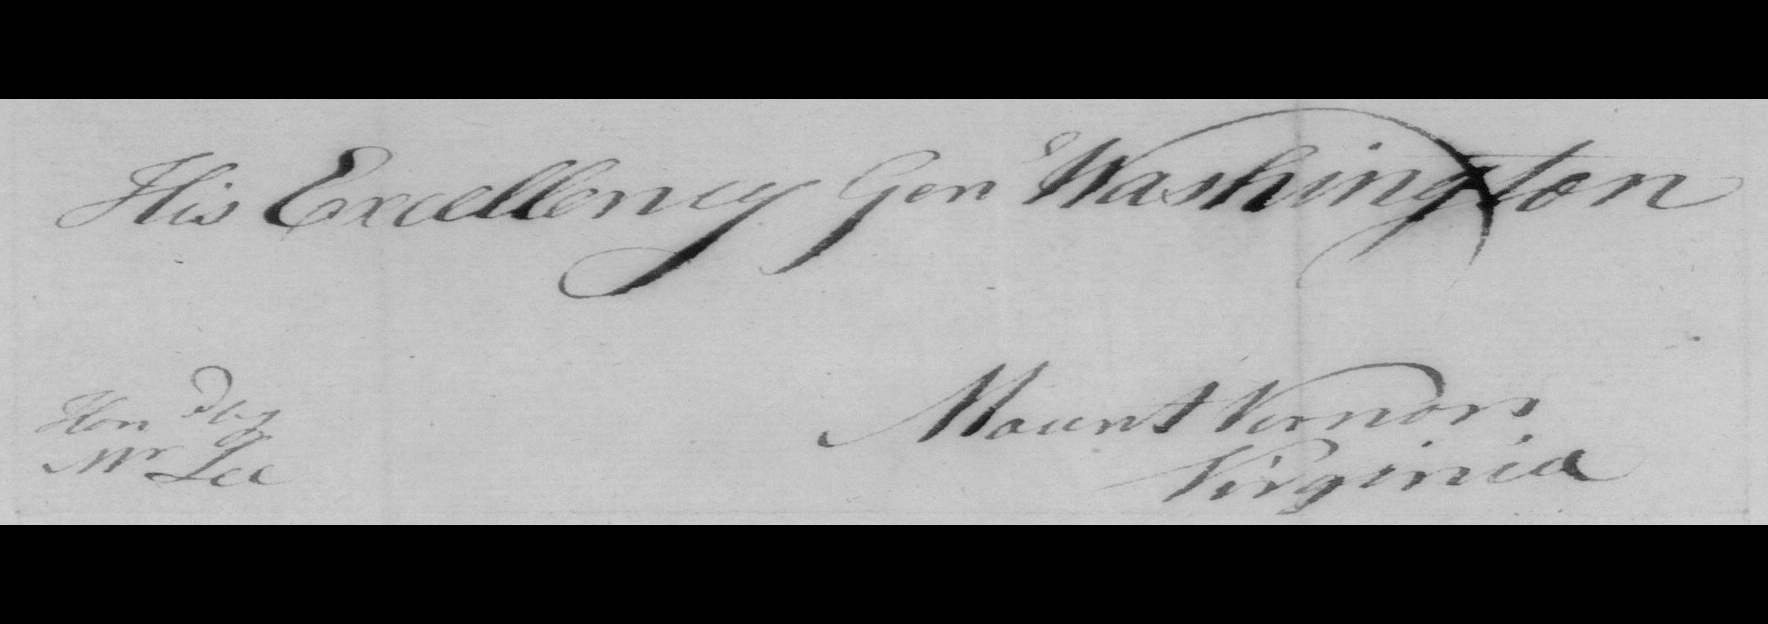 His Excellency Genl Washington
Hond by
Mr Lee
Mount Vernon
Virginia